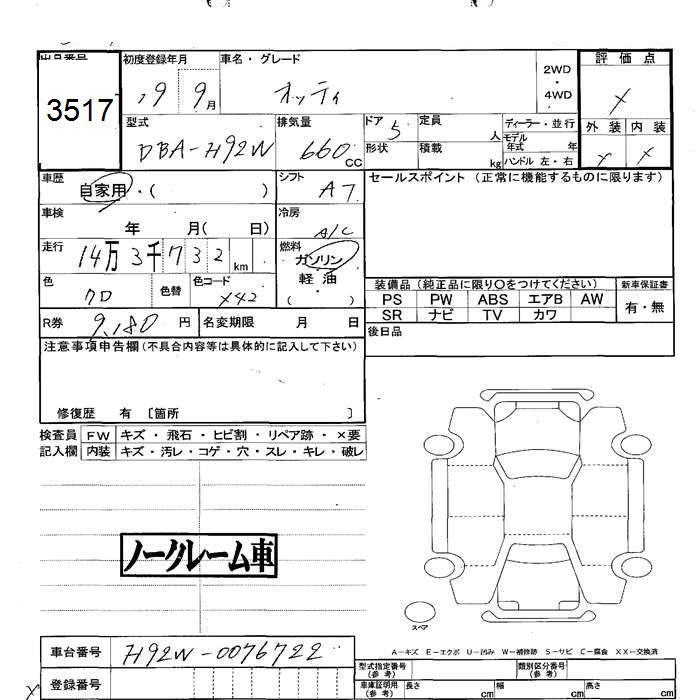 3517
初度登録年月 車名・グレード 評価点
19 9月 オッティ 2WD・4WD
型式 排気量 ドア 定員 ディーラー・並行 外装 内装
DBA-H92W 660cc 5 人 モデル年式 年
形状 積載 kg ハンドル 左・右
車歴 シフト セールスポイント (正常に機能するものに限ります)
自家用・( ) AT
車検 冷房
年 月( 日) A/C
走行 燃料
14万3千732km ガソリン
色 色替 色コード 軽油
クロ X42 ( )
装備品(純正品に限り〇をつけてください) 新車保証書
PS PW ABS エアB AW 有・無
SR ナビ TV カワ
R券 9,180円 名変期限 月 日 後日品
注意事項申告欄(不具合内容等は具体的に記入して下さい)
修復歴 有〔箇所 〕
検査員 FW キズ・飛石・ヒビ割・リペア跡・×要
記入欄 内装 キズ・汚レ・コゲ・穴・スレ・キレ・破レ
ノークレーム車
スペア
A-キズ E-エクボ U-凹み W-補修跡 S-サビ C-腐食 XX-交換済
車台番号 H92W-0076722
型式指定番号(参考) 類別区分番号(参考)
登録番号
車庫証明用(参考) 長さ cm 幅 cm 高さ cm